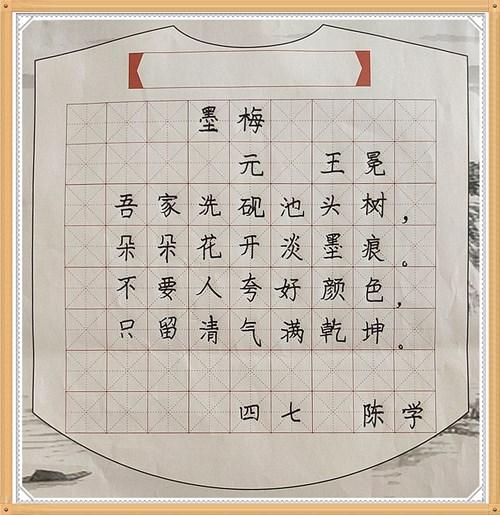 墨梅
元 王冕
吾家洗砚池头树，
朵朵花开淡墨痕。
不要人夸好颜色，
只留清气满乾坤。
四七 陈学